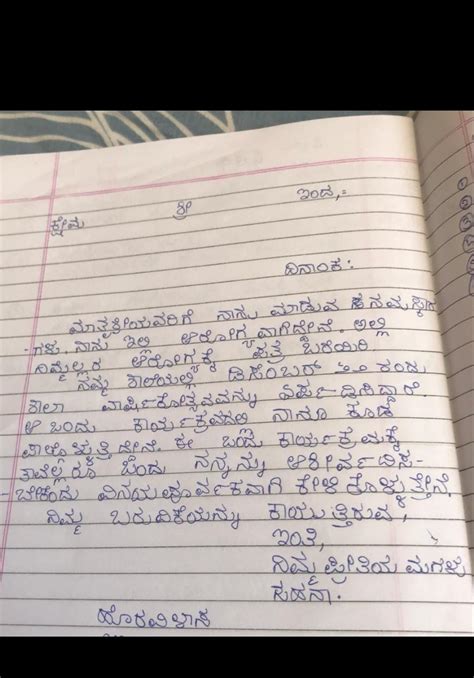 ಕ್ಷೇಮ ಶ್ರೀ ಇಂದ,:
ದಿನಾಂಕ:
ಮಾತೃಶ್ರೀಯವರಿಗೆ ನಾನು ಮಾಡುವ ನಮಸ್ಕಾರ
-ಗಳು. ನಾನು ಇಲ್ಲಿ ಆರೋಗ್ಯವಾಗಿದ್ದೇನೆ. ಅಲ್ಲಿ
ನಿಮ್ಮೆಲ್ಲರ ಆರೋಗ್ಯಕ್ಕೆ ಪತ್ರ ಬರೆಯಿರಿ
ನಮ್ಮ ಶಾಲೆಯಲ್ಲಿ ಡಿಸೆಂಬರ್ ರಂದು
ಶಾಲಾ ವಾರ್ಷಿಕೋತ್ಸವವನ್ನು ಏರ್ಪಡಿಸಿದ್ದಾರೆ.
ಆ ಒಂದು ಕಾರ್ಯಕ್ರಮದಲ್ಲಿ ನಾನೂ ಕೂಡ
ಪಾಲ್ಗೊಳ್ಳುತ್ತಿದ್ದೇನೆ. ಈ ಒಂದು ಕಾರ್ಯಕ್ರಮಕ್ಕೆ
ತಾವೆಲ್ಲರೂ ಬಂದು ನನ್ನನ್ನು ಆಶೀರ್ವದಿಸ-
-ಬೇಕೆಂದು ವಿನಯಪೂರ್ವಕವಾಗಿ ಕೇಳಿಕೊಳ್ಳುತ್ತೇನೆ.
ನಿಮ್ಮ ಬರುವಿಕೆಯನ್ನು ಕಾಯುತ್ತಿರುವ,
ಇಂತಿ,
ನಿಮ್ಮ ಪ್ರೀತಿಯ ಮಗಳು
ಸಹನಾ.
ಹೊರವಿಳಾಸ